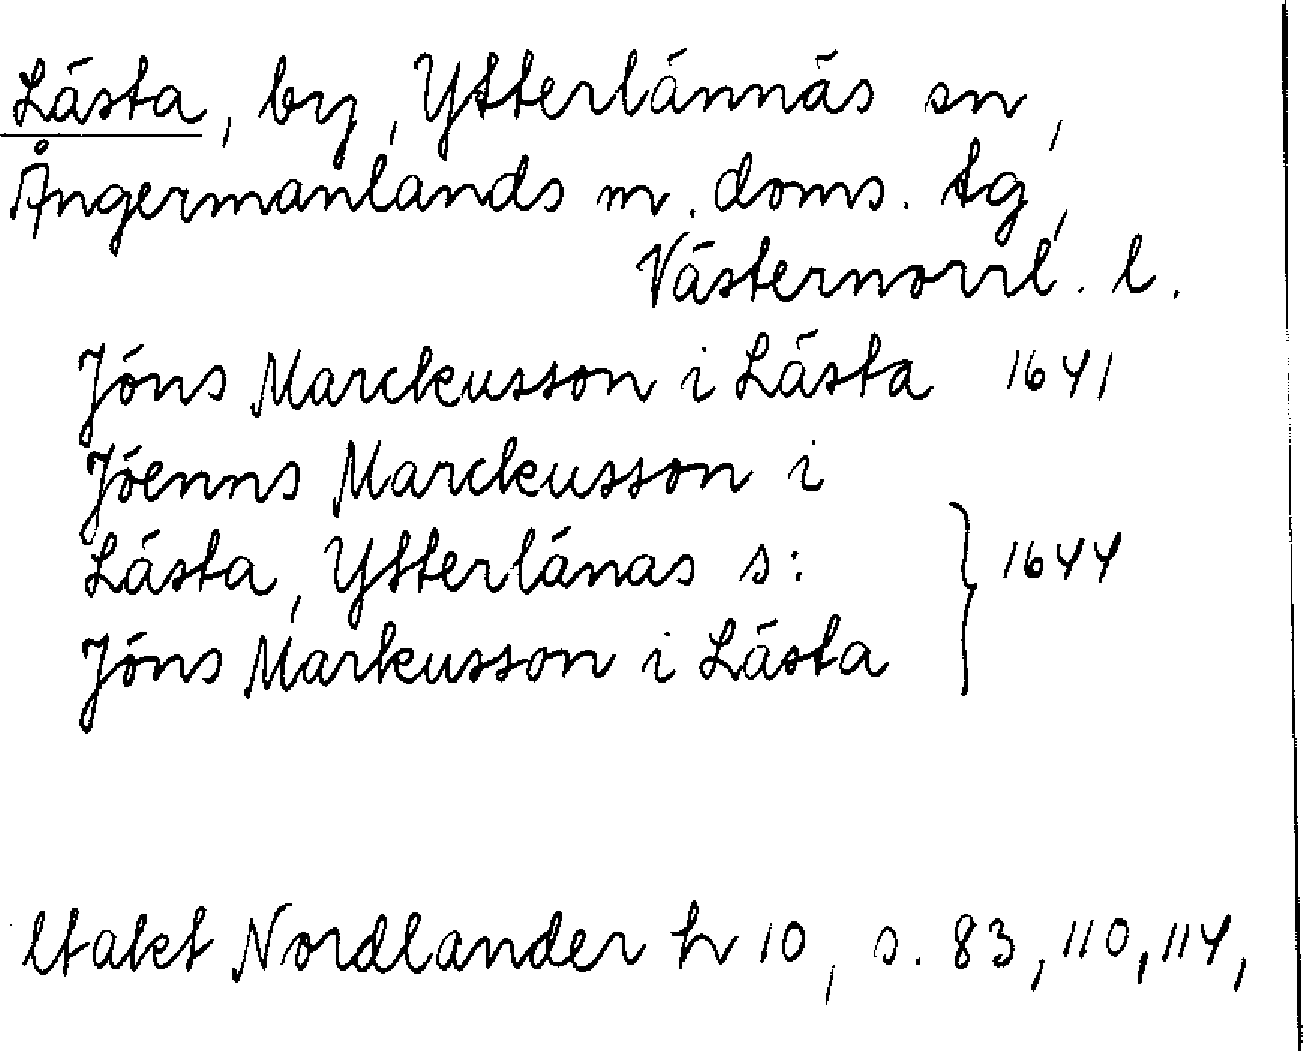 Lästa, by, Ytterlännäs sn,
Ångermanlands m. doms. tg,
Västernorrl. l.
Jöns Marckusson i Lästa 1641
Jöenns Marckusson i
Lästa, Ytterlänas s: } 1644
Jöns Markusson i Lästa
Utakt Nordlander h 10, s. 83, 110, 114,